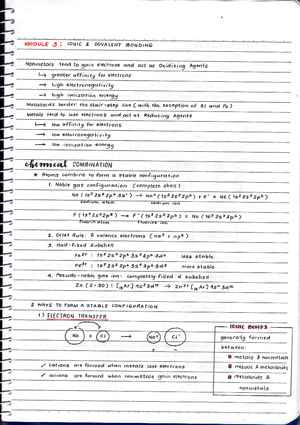 MODULE 5: IONIC & COVALENT BONDING
Nonmetals tend to gain electrons and act as Oxidizing Agents
↳ greater affinity for electrons
→ high electronegativity
→ high ionization energy
Metalloids border the stair-step line (with the exception of Al and Po)
Metals tend to lose electrons and act as Reducing Agents
↳ low affinity for electrons
→ low electronegativity
→ low ionization energy
chemical COMBINATION
* Atoms combine to form a stable configuration
1. Noble gas configuration (complete shell):
Na (1s² 2s² 2p⁶ 3s¹) → Na⁺ (1s² 2s² 2p⁶) + e⁻ = Ne (1s² 2s² 2p⁶)
sodium atom sodium ion
F (1s² 2s² 2p⁵) → F⁻ (1s² 2s² 2p⁶) = Ne (1s² 2s² 2p⁶)
fluorin atom fluorin ion
2. Octet Rule: 8 valence electrons (ns² + np⁶)
3. Half-filled subshell
Fe²⁺ : 1s² 2s² 2p⁶ 3s² 3p⁶ 3d⁶ less stable
Fe³⁺ : 1s² 2s² 2p⁶ 3s² 3p⁶ 3d⁵ more stable
4. Pseudo-noble gas ion: completely-filled d subshell
Zn (Z=30): [₁₈Ar] 4s² 3d¹⁰ → Zn²⁺ [₁₈Ar] 4s⁰ 3d¹⁰
2 WAYS TO FORM A STABLE CONFIGURATION
1) ELECTRON TRANSFER
Na + Cl → Na⁺ Cl⁻
+ −
✓ cations are formed when metals lose electrons
✓ anions are formed when nonmetals gain electrons
IONIC BONDS
generally formed
between:
metals & nonmetals
metals & metalloids
metalloids &
nonmetals